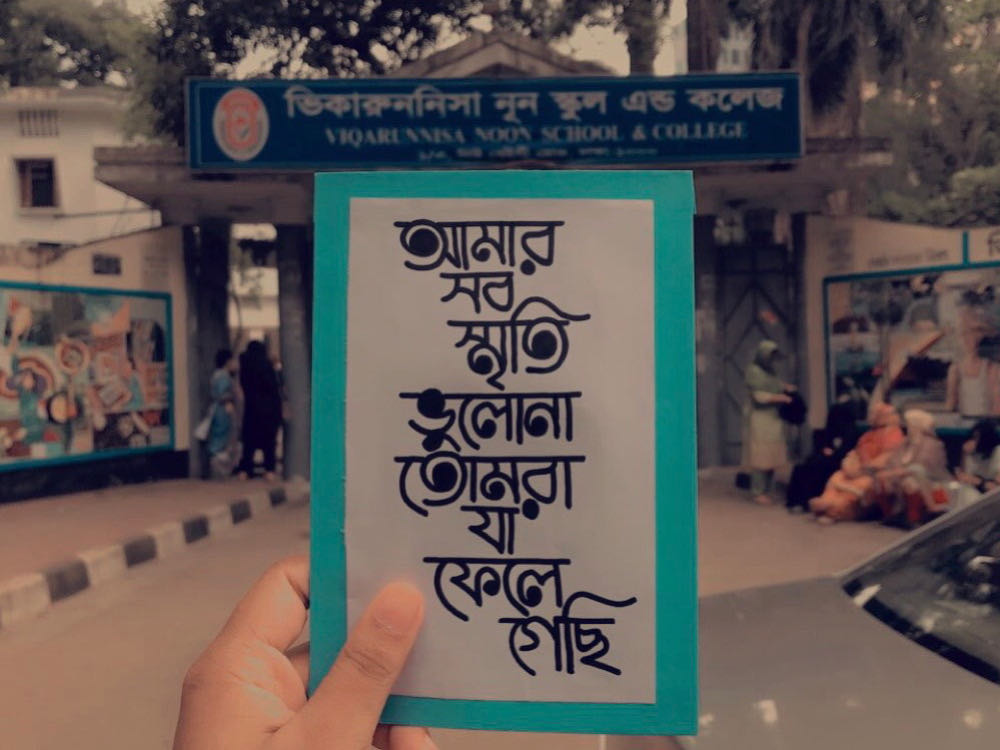 ভিকারুননিসা নূন স্কুল এন্ড কলেজ
VIQARUNNISA NOON SCHOOL & COLLEGE
আমার
সব
স্মৃতি
ভুলোনা
তোমরা
যা
ফেলে
গেছি